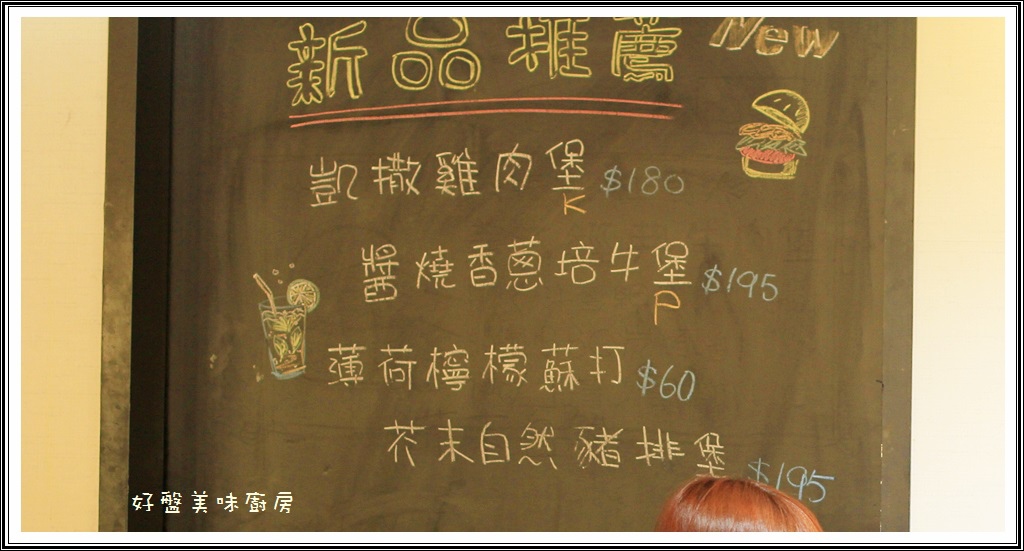 新品推薦 New
凱撒雞肉堡 $180
K
醬燒香蔥培牛堡 $195
P
薄荷檸檬蘇打 $60
芥末自然豬排堡 $195
好盤美味廚房